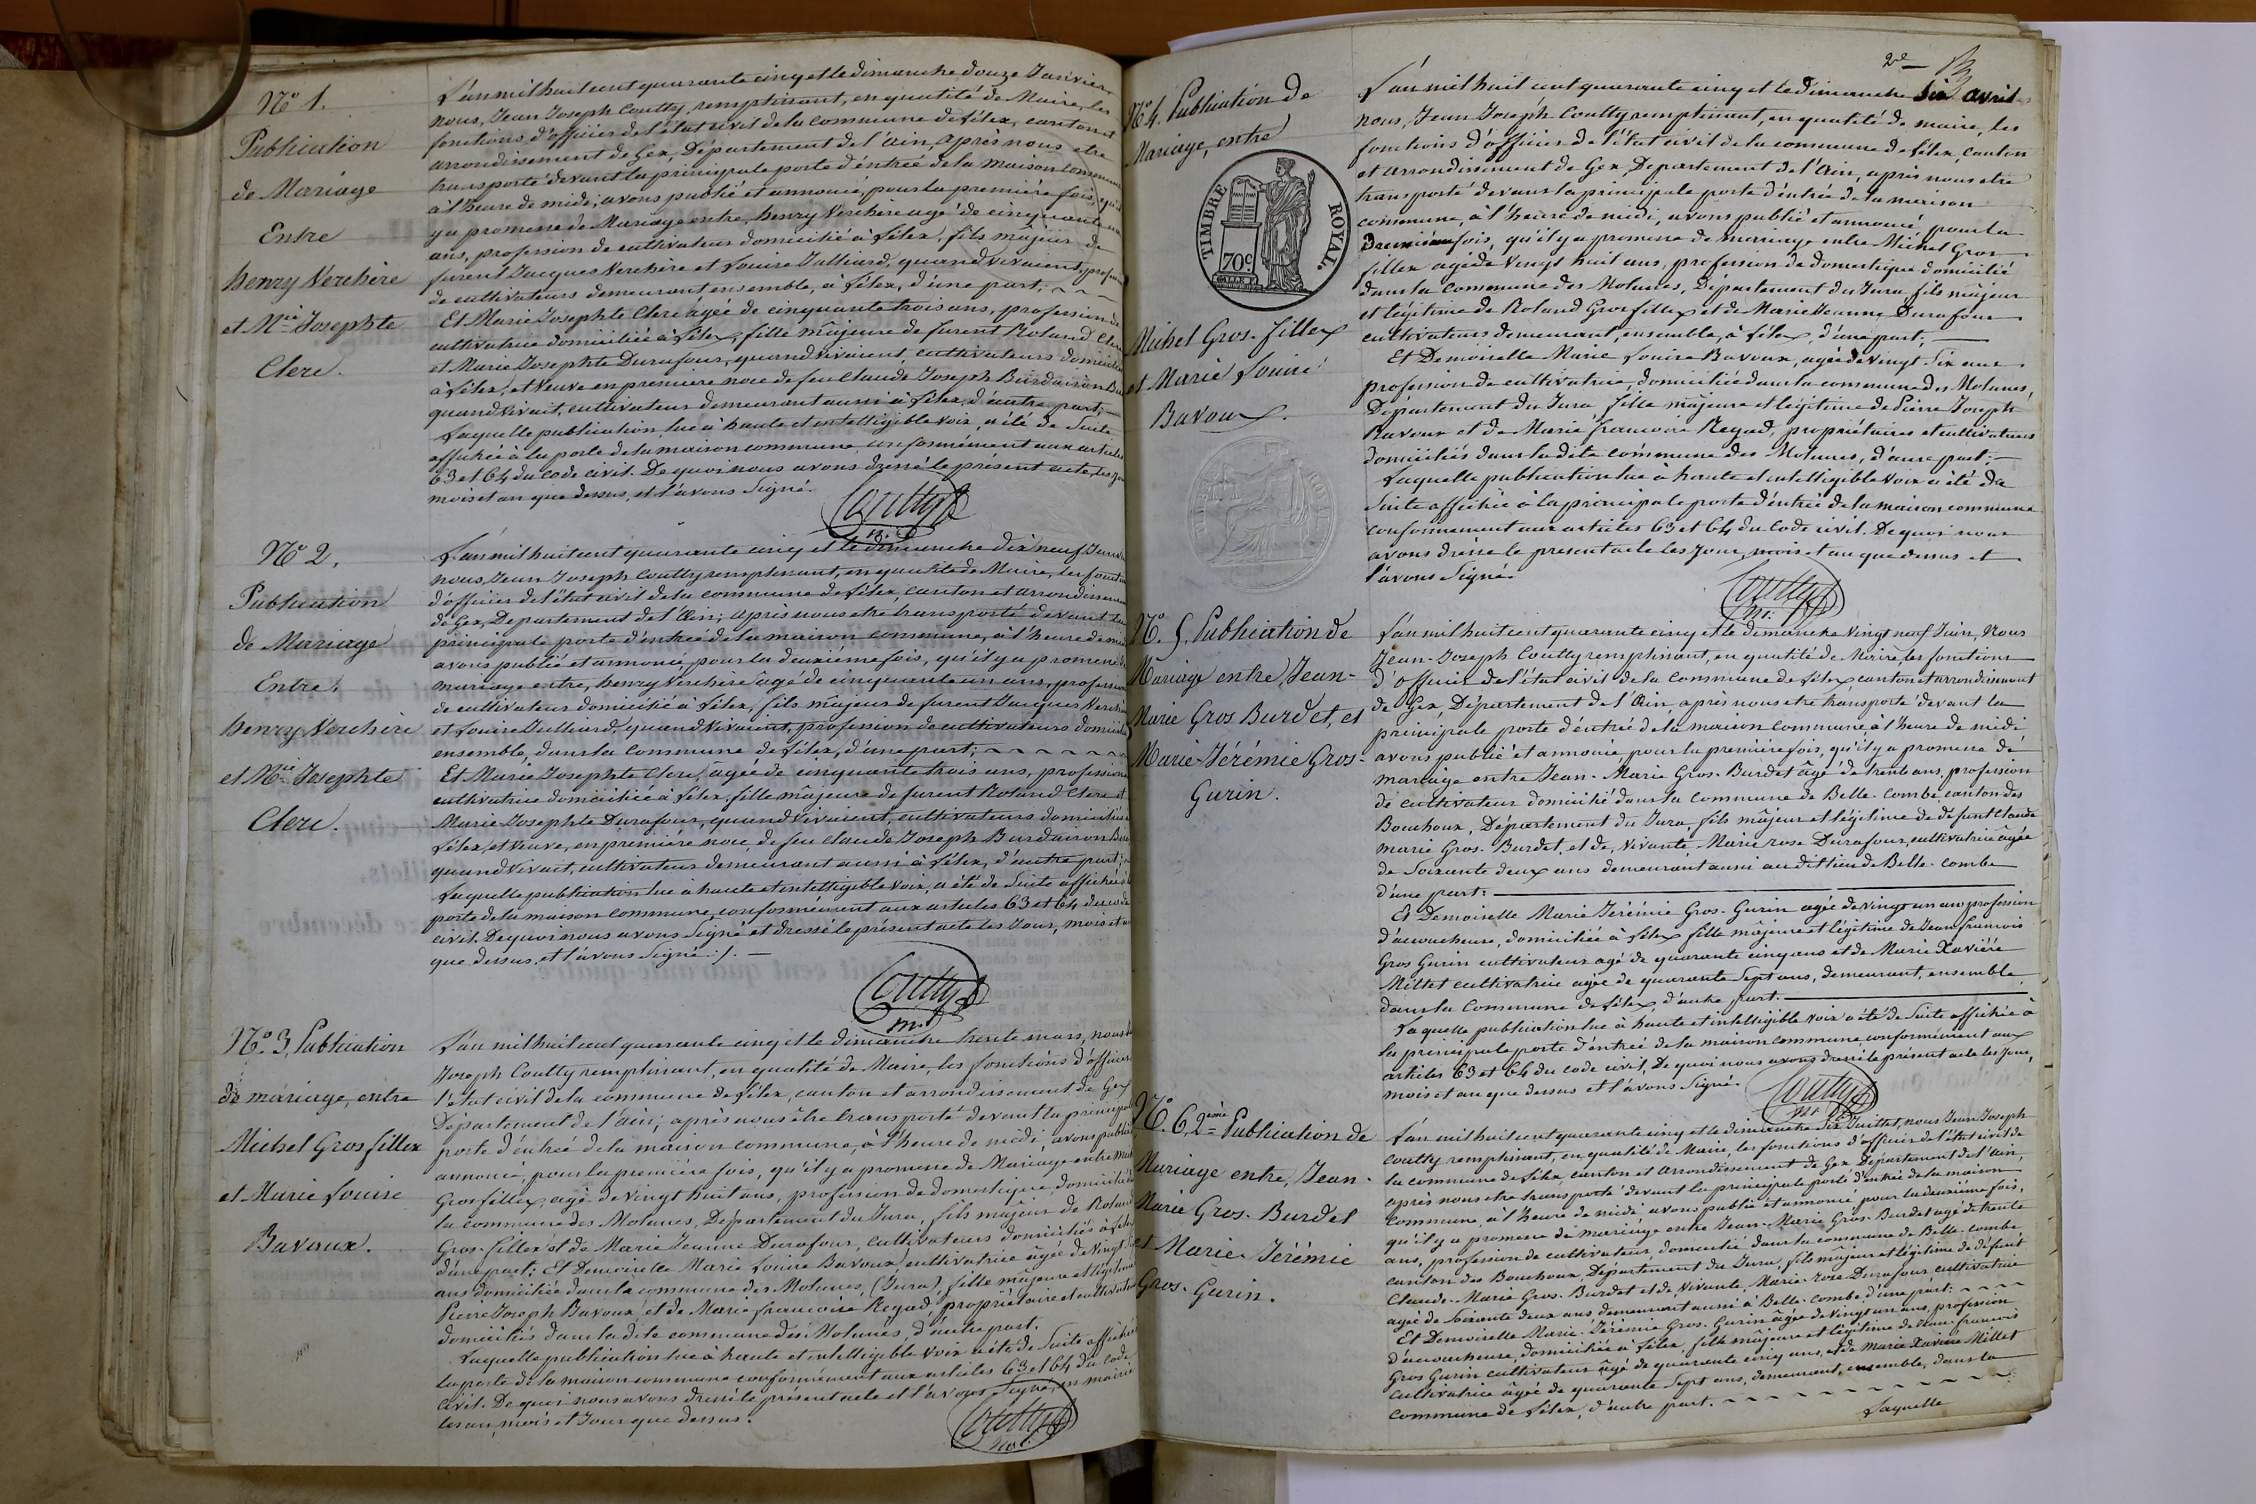 N.° 1.
Publication
de Mariage
Entre
henry Verchère
et M.ie Josephte
Clerc.
L'an mil huit cent quarante cinq et le dimanche douze Janvier,
nous, Jean Joseph Coutty, remplissant, en qualité de Maire, les
fonctions d'officier de l'état civil de la commune de Lélex, canton et
arrondissement de Gex, Département de l'ain, après nous etre
transporté devant la principale porte d'éntrée de la Maison commune
à l'heure de midi; avons publié et annoncé, pour la première fois, qu'il
ya promesse de Mariage entre, henry Verchère agé de cinquante un
ans, profession de cultivateur domicilié à Lélex, fils mâjeur de
furent Jacques Verchère et Louise Julliard, quand vivaient, profession
de cultivateurs demeurant ensemble, à Lélex, d'une part;
Et Marie Josephte Clerc, âgée de cinquante trois ans, profession de
cultivatrice domiciliée à Lélex, fille mâjeure de furent Roland Clerc
et Marie Josephte Durafour, quand vivaient, cultivateurs domiciliés
à Lélex, et Veuve en première noce de feu Claude Joseph Burdairon
quand vivait, cultivateur demeurant aussi à Lélex, d'autre part;
Laquelle publication lue à haute et intelligible voix, a été de Suite
affichée à la porte de la maison commune, conformément aux articles
63 et 64 du Code civil. De quoi nous avons dressé le présent acte, les jour
mois et an que dessus, et l'avons Signé.
Coutty
N.° 2.
Publication
de Mariage
Entre,
henry Verchère
et M.ie Josephte
Clerc.
L'an mil huit cent quarante cinq et le dimanche dix neuf Janvier
nous, Jean Joseph Coutty remplissant, en qualité de Maire, les fonctions
d'officier de l'état civil de la commune de Lélex, canton et arrondissement
de Gex, Département de l'Ain; après nous etre transporté devant la
principale porte d'éntrée de la maison commune, à l'heure de midi
avons publié et annoncé, pour la deuxième fois, qu'il y a promesse de
mariage entre, henry Verchère âgé de cinquante un ans, profession
de cultivateur domicilié à Lélex, fils mâjeur de furent Jacques Verchère
et Louise Julliard, quand Vivaient, profession de cultivateurs domiciliés
ensemble, dans la commune de Lélex, d'une part;
Et Marie Josephte Clerc, âgée de cinquante trois ans, profession
cultivatrice domiciliée à Lélex, fille mâjeure de furent Roland Clerc et
Marie Josephte Durafour, quand vivaient, cultivateurs domiciliés
Lélex, et Veuve, en première noce, de feu Claude Joseph Burdairon
quand vivait, cultivateur demeurant aussi à Lélex, d'autre part;
Laquelle publication lue à haute et intelligible voix, a été de Suite affichée
porte de la maison commune, conformément aux articles 63 et 64 du code
civil. De quoi nous avons Signé et dressé le présent acte les Jour, mois et an
que dessus, et l'avons Signé ./.
Coutty
N.° 3. Publication
de mariage, entre
Michel Gros fillex
et Marie Louise
Bavoux.
L'an mil huit cent quarante cinq et le dimanche trente mars, nous
Joseph Coutty remplissant, en qualité de Maire, les fonctions d'officier
l'état civil de la commune de Lélex, canton et arrondissement de Gex
Département de l'ain; après nous être transporté devant la principale
porte d'éntrée de la maison commune, à l'heure de midi, avons publié
annoncé, pour la première fois, qu'il y a promesse de Mariage entre
Gros fillex, agé de vingt huit ans, profession de domestique, domicilié
la commune des Molunes, Département du Jura, fils majeur de Roland
Gros-fillex et de Marie Jeanne Durafour, cultivateurs domiciliés à Lélex
d'une part; Et Demoiselle Marie Louise Bavoux, cultivatrice âgée de vingt
ans domiciliée dans la commune des Molunes, (Jura), fille mâjeure et légitime
Pierre Joseph Bavoux et de Marie francoise Regad, propriétaires et cultivateurs
domiciliés dans la dite commune des Molunes, d'autre part.
Laquelle publication lue à haute et intelligible voix a été de Suite affichée
la porte de la maison commune conformément aux articles 63 et 64 du code
civil. De quoi nous avons dressé le présent acte et l'avons Signé, en mairie
les an, mois et Jour que dessus.
Coutty
2e
N.° 4. Publication de
Mariage, entre
TIMBRE ROYAL.
70c
Michel Gros-fillex
et Marie Louise
Bavoux.
L'an mil huit cent quarante cinq et le dimanche Six avril
nous, Jean Joseph Coutty remplissant, en qualité de maire, les
fonctions d'officier de l'état civil de la commune de Lélex, canton
et arrondissement de Gex, Département de l'Ain, après nous etre
transporté devant la principale porte d'éntrée de la maison
commune, à l'heure de midi, avons publié et annoncé, pour la
Deuxième fois, qu'il y a promesse de mariage entre Michel Gros
fillex agé de Vingt huit ans, profession de domestique domicilié
dans la commune des Molunes, Département du Jura, fils mâjeur
et légitime de Roland Gros fillex et de Marie Jeanne Durafour
cultivateurs demeurant, ensemble, à Lélex, d'une part;
Et Demoiselle Marie Louise Bavoux, agée de vingt Six ans
profession de cultivatrice, domiciliée dans la commune des Molunes,
Département du Jura, fille mâjeure et légitime de Pierre Joseph
Bavoux et de Marie francoise Regad, propriétaires et cultivateurs
domiciliés dans la dite commune des Molunes, d'autre part;
Laquelle publication lue à haute et intelligible voix a été de
Suite affichée à la principale porte d'éntrée de la maison commune
conformément aux articles 63 et 64 du Code civil. De quoi nous
avons dressé le présent acte les Jour, mois et an que dessus et
l'avons Signé.
Coutty
N.° 5. Publication de
Mariage entre, Jean-
Marie Gros Burdet, et
Marie-Jérémie Gros-
Gurin.
L'an mil huit cent quarante cinq et le dimanche Vingt neuf Juin, Nous
Jean-Joseph Coutty remplissant, en qualité de Maire, les fonctions
d'officier de l'état civil de la commune de Lélex canton et arrondissement
de Gex, Département de l'Ain, après nous etre transporté devant la
principale porte d'éntrée de la maison commune, à l'heure de midi
avons publié et annoncé, pour la première fois, qu'il y a promesse de
mariage entre Jean-Marie Gros-Burdet âgé de trente ans, profession
de cultivateur domicilié dans la commune de Belle-combe canton des
Bouchoux, Département du Jura, fils mâjeur et légitime de défunt Claude
marie Gros-Burdet, et de vivante Marie rose Durafour, cultivatrice âgée
de Soixante deux ans demeurant aussi au dit lieu de Belle-combe
d'une part:
Et Demoiselle Marie Jérémie Gros-Gurin agée de vingt un ans profession
d'accoucheuse, domiciliée à Lélex fille mâjeure et légitime de Jean francois
Gros Gurin cultivateur agé de quarante cinq ans et de Marie Xavière
Millet cultivatrice agée de quarante Sept ans, demeurant, ensemble,
dans la commune de Lélex, d'autre part.
Laquelle publication lue à haute et intelligible voix a été de Suite affichée à
la principale porte d'éntrée de la maison commune conformément aux
articles 63 et 64 du code civil. De quoi nous avons dressé le présent acte les Jour,
mois et an que dessus et l'avons Signé.
Coutty
N.° 6. 2.ème Publication de
Mariage entre, Jean-
Marie Gros-Burdet
et Marie-Jérémie
Gros-Gurin.
L'an mil huit cent quarante cinq et le dimanche Six Juillet, nous Jean Joseph
Coutty remplissant, en qualité de Maire, les fonctions d'officier de l'état civil de
la commune de Lélex, canton et arrondissement de Gex Département de l'ain,
après nous etre transporté devant la principale porte d'éntrée de la maison
commune, à l'heure de midi avons publié et annoncé pour la deuxième fois,
qu'il y a promesse de mariage entre Jean-Marie Gros-Burdet agé de trente
ans, profession de cultivateur, domicilié dans la commune de Belle-combe
canton des Bouchoux, Département du Jura, fils mâjeur et légitime de défunt
Claude-Marie Gros-Burdet et de Vivante, Marie-rose Durafour cultivatrice
agée de Soixante deux ans demeurant aussi à Belle-combe d'une part:
Et Demoiselle Marie-Jérémie Gros-Gurin âgée de vingt un ans, profession
d'accoucheuse, domiciliée à Lélex, fille mâjeure et légitime de Jean-francois
Gros Gurin cultivateur âgé de quarante cinq ans, et de Marie Xavière Millet
cultivatrice âgée de quarante Sept ans, demeurant, ensemble, dans la
commune de Lélex, d'autre part.
Laquelle